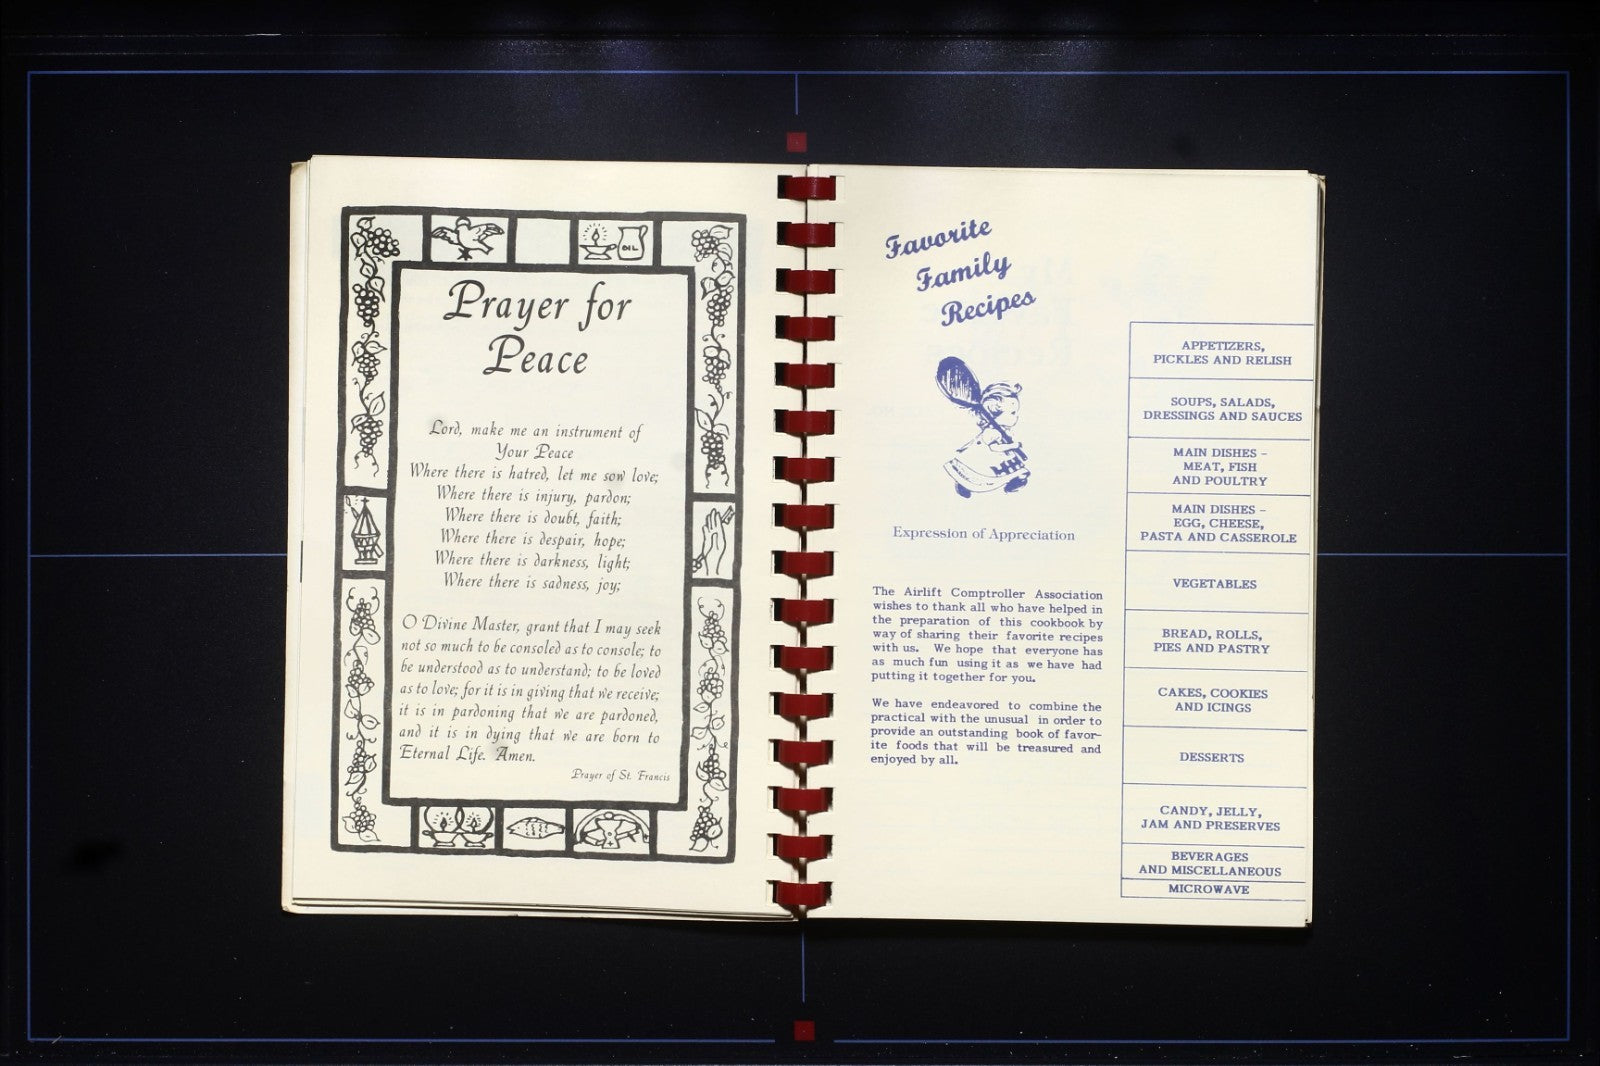 OIL
Prayer for
Peace
Lord, make me an instrument of
Your Peace
Where there is hatred, let me sow love;
Where there is injury, pardon;
Where there is doubt, faith;
Where there is despair, hope;
Where there is darkness, light;
Where there is sadness, joy;
O Divine Master, grant that I may seek
not so much to be consoled as to console; to
be understood as to understand; to be loved
as to love; for it is in giving that we receive;
it is in pardoning that we are pardoned,
and it is in dying that we are born to
Eternal Life. Amen.
Prayer of St. Francis
Favorite
Family
Recipes
Expression of Appreciation
The Airlift Comptroller Association
wishes to thank all who have helped in
the preparation of this cookbook by
way of sharing their favorite recipes
with us. We hope that everyone has
as much fun using it as we have had
putting it together for you.
We have endeavored to combine the
practical with the unusual in order to
provide an outstanding book of favor-
ite foods that will be treasured and
enjoyed by all.
APPETIZERS,
PICKLES AND RELISH
SOUPS, SALADS,
DRESSINGS AND SAUCES
MAIN DISHES -
MEAT, FISH
AND POULTRY
MAIN DISHES -
EGG, CHEESE,
PASTA AND CASSEROLE
VEGETABLES
BREAD, ROLLS,
PIES AND PASTRY
CAKES, COOKIES
AND ICINGS
DESSERTS
CANDY, JELLY,
JAM AND PRESERVES
BEVERAGES
AND MISCELLANEOUS
MICROWAVE